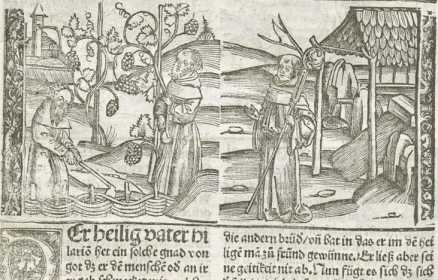 Er heilig vater hi
lariō het ein solche gnad von
got dz er dē menschē od an ir
die andern brüd/vñ bat in das er im dē hei
ligē mā zů fründ gewünne. Er ließ aber sei
ne geitikeit nit ab. Nun fůgt es sich dz sich